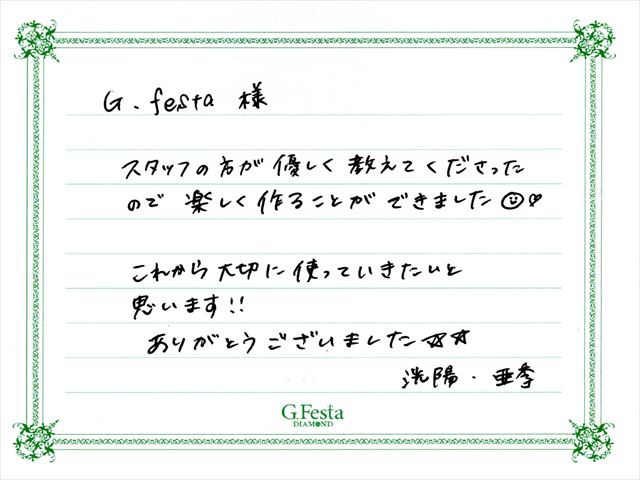 G.festa 様
スタッフの方が優しく教えてくださった
ので楽しく作ることができました
これから大切に使っていきたいと
思います!!
ありがとうございました☆☆
洸陽・亜季
G.Festa
DIAMOND